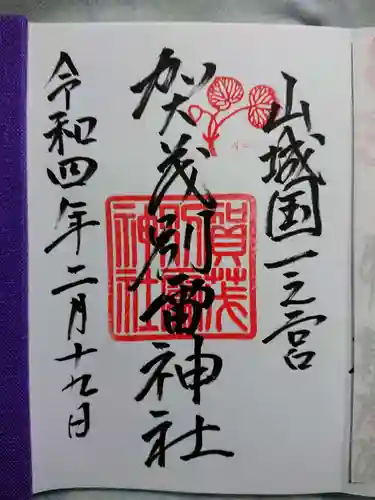 山城国一之宮
賀茂別雷神社
令和四年二月十九日
賀茂別雷神社